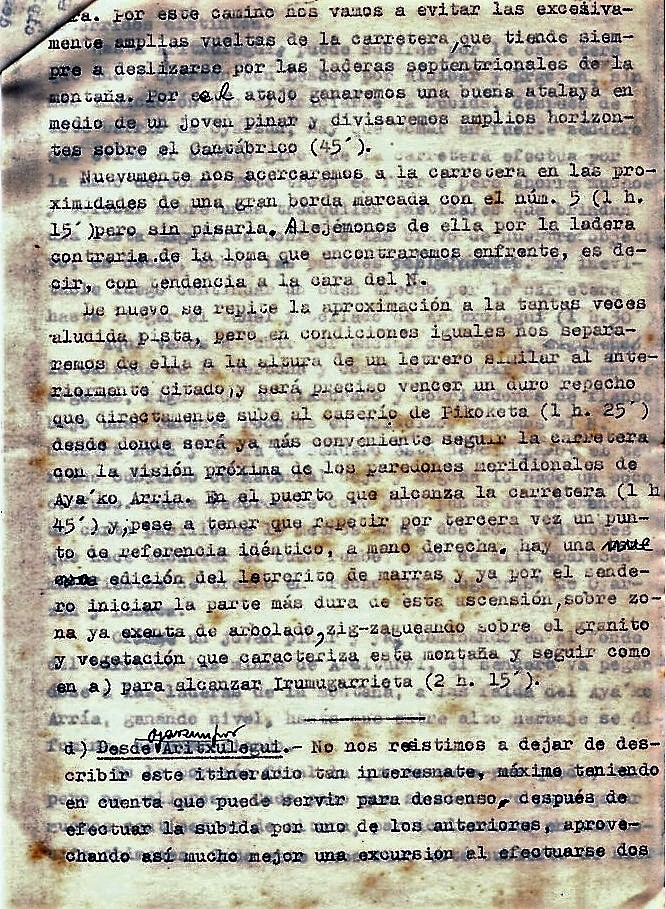 ra. Por este camino nos vamos a evitar las excesiva-
mente amplias vueltas de la carretera, que tiende siem-
pre a deslizarse por las laderas septentrionales de la
montaña. Por el atajo ganaremos una buena atalaya en
medio de un joven pinar y divisaremos amplios horizon-
tes sobre el Cantábrico (45´).
Nuevamente nos acercaremos a la carretera en las pro-
ximidades de una gran borda marcada con el núm. 5 (1 h.
15´)pero sin pisarla. Alejémonos de ella por la ladera
contraria.de la loma que encontraremos enfrente, es de-
cir, con tendencia a la cara del N.
De nuevo se repite la aproximación a la tantas veces
aludida pista, pero en condiciones iguales nos separa-
remos de ella a la altura de un letrero similar al ante-
riormente citado, y será preciso vencer un duro repecho
que directamente sube al caserío de Pikoketa (1 h. 25´)
desde donde será ya más conveniente seguir la carretera
con la visión próxima de los paredones meridionales de
Aya´ko Arria. En el puerto que alcanza la carretera (1 h
45´) y,pese a tener que repetir por tercera vez un pun-
to de referencia idéntico, a mano derecha. hay una
edición del letrerito de marras y ya por el sende-
ro iniciar la parte más dura de esta ascensión,sobre zo-
na ya exenta de arbolado,zig-zagueando sobre el granito
y vegetación que caracteriza esta montaña y seguir como
en a) para alcanzar Irumugarrieta (2 h. 15´).
d) Desde Aritxulegui.- No nos resistimos a dejar de des-
cribir este itinerario tan interesnate, máxime teniendo
en cuenta que puede servir para descenso, después de
efectuar la subida por uno de los anteriores, aprove-
chando así mucho mejor una excursion al efectuarse dos